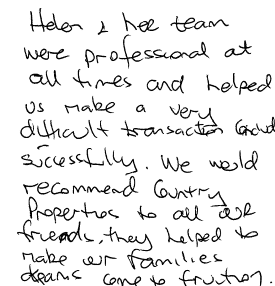 Helen & her team
were professional at
all times and helped
us make a very
difficult transaction conclude
successfully. We would
recommend Country
Properties to all our
friends, they helped to
make our families
dreams come to fruition.